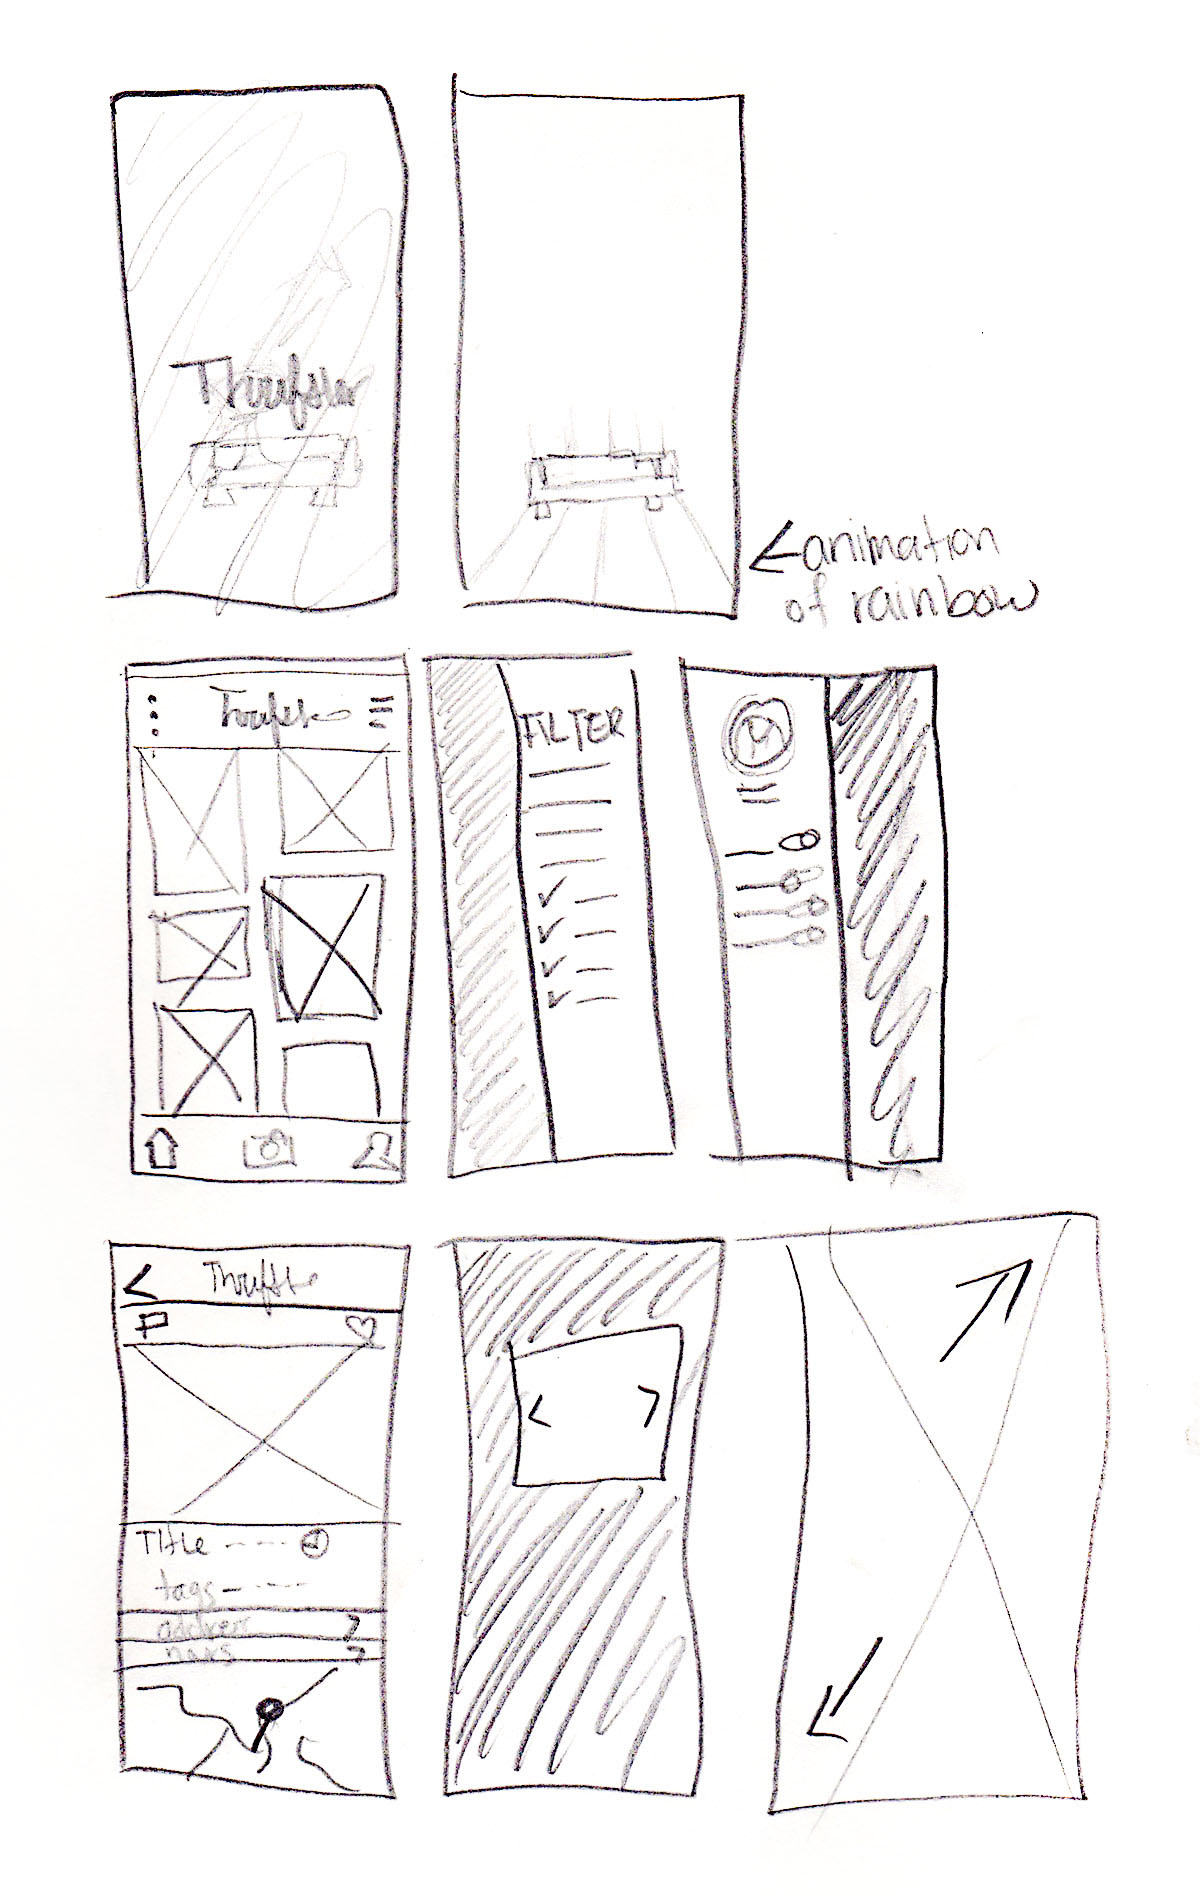 Thrifster
animation
of rainbow
Thrifster
FILTER
Thrifster
Title
tags
address